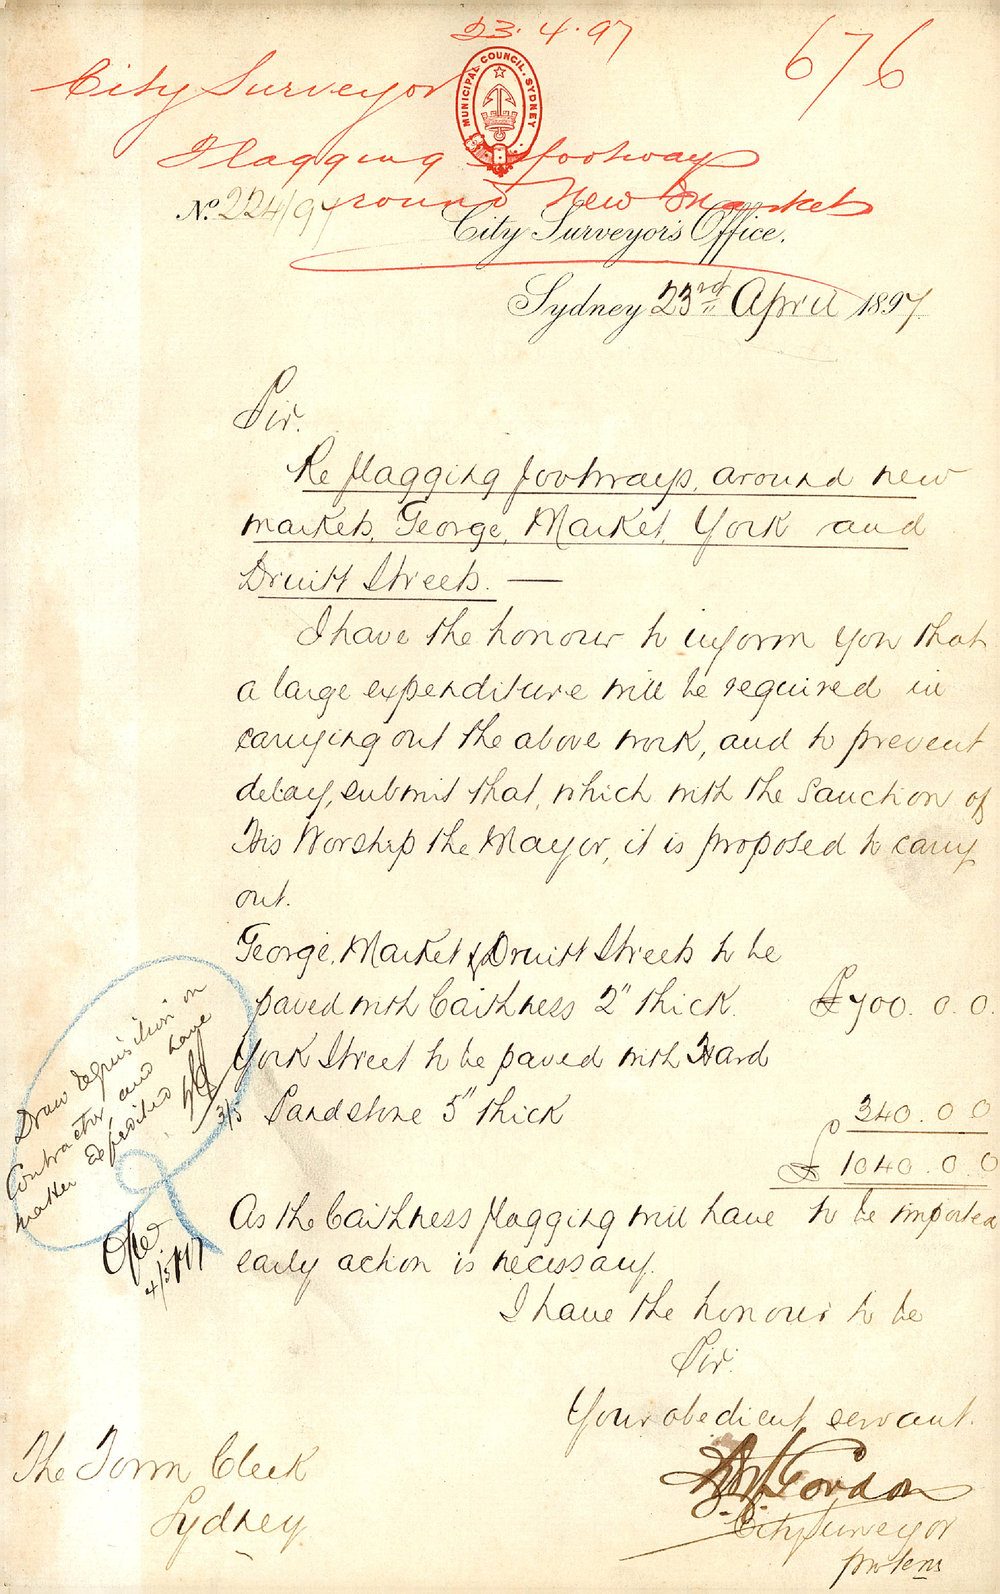 23.4.97
676
City Surveyor
MUNICIPAL COUNCIL. SYDNEY
Flagging footway
round New Market
No. 224/97
City Surveyor's Office.
Sydney 23rd April 1897
Sir.
Re flagging footways, around new
markets, George, Market, York and
Druitt Streets. —
I have the honour to inform you that
a large expenditure will be required in
carrying out the above work, and to prevent
delay, submit that, which with the Sanction of
His Worship the Mayor, it is proposed to carry
out.
George, Market & Druitt Streets to be
paved with Caithness 2" thick. £700.0.0.
York Street to be paved with Hard
Sandstone 5" thick 340.0.0
£1040.0.0
As the Caithness flagging will have to be imported
early action is necessary.
I have the honour to be
Sir.
Your obedient servant.
Gordon
City Surveyor
pro tem
The Town Clerk
Sydney
Draw requisition on
Contractor and have
matter deposited
3/5
4/5/97